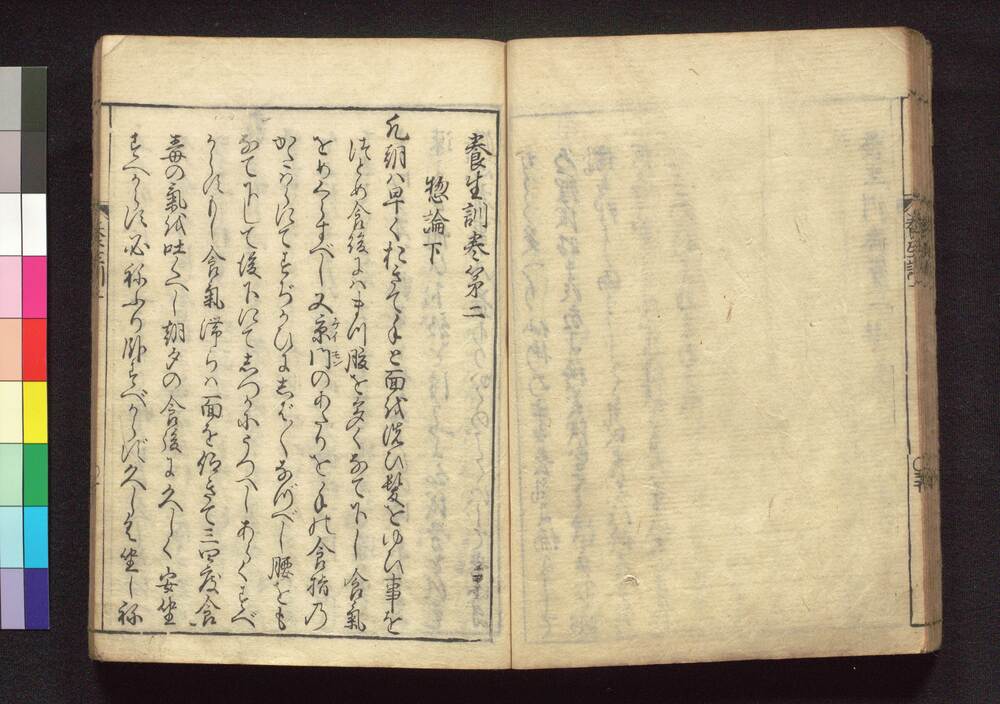 養生訓巻第二
惣論下
凡朝ハ早くおきて手と面を洗ひ髪をゆひ事を
つとめ食後にハまづ腹を多くなで下し食氣
をめぐらすべし又京門のあたりを手の食指の
ケイモン
かたハらにてすぢかひにしばしばなづべし腰をも
なで下して後下にてしづかにうつべしあらくすべ
からずもし食氣滞らハ面を仰きて三四度食
毒の氣を吐くべし朝夕の食後に久しく安坐
すべからず必ねふり臥すべからず久しく坐しね
養生訓